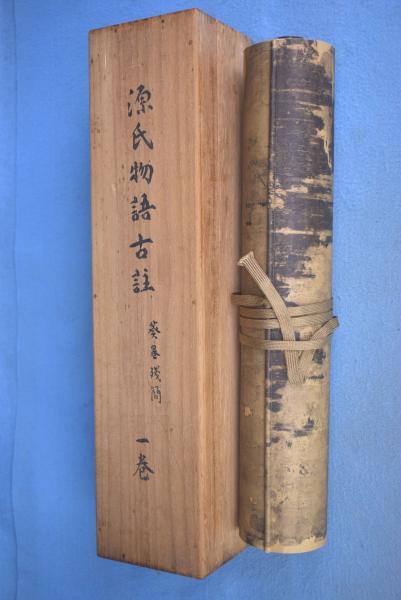 源氏物語古註
葵巻残簡
一巻